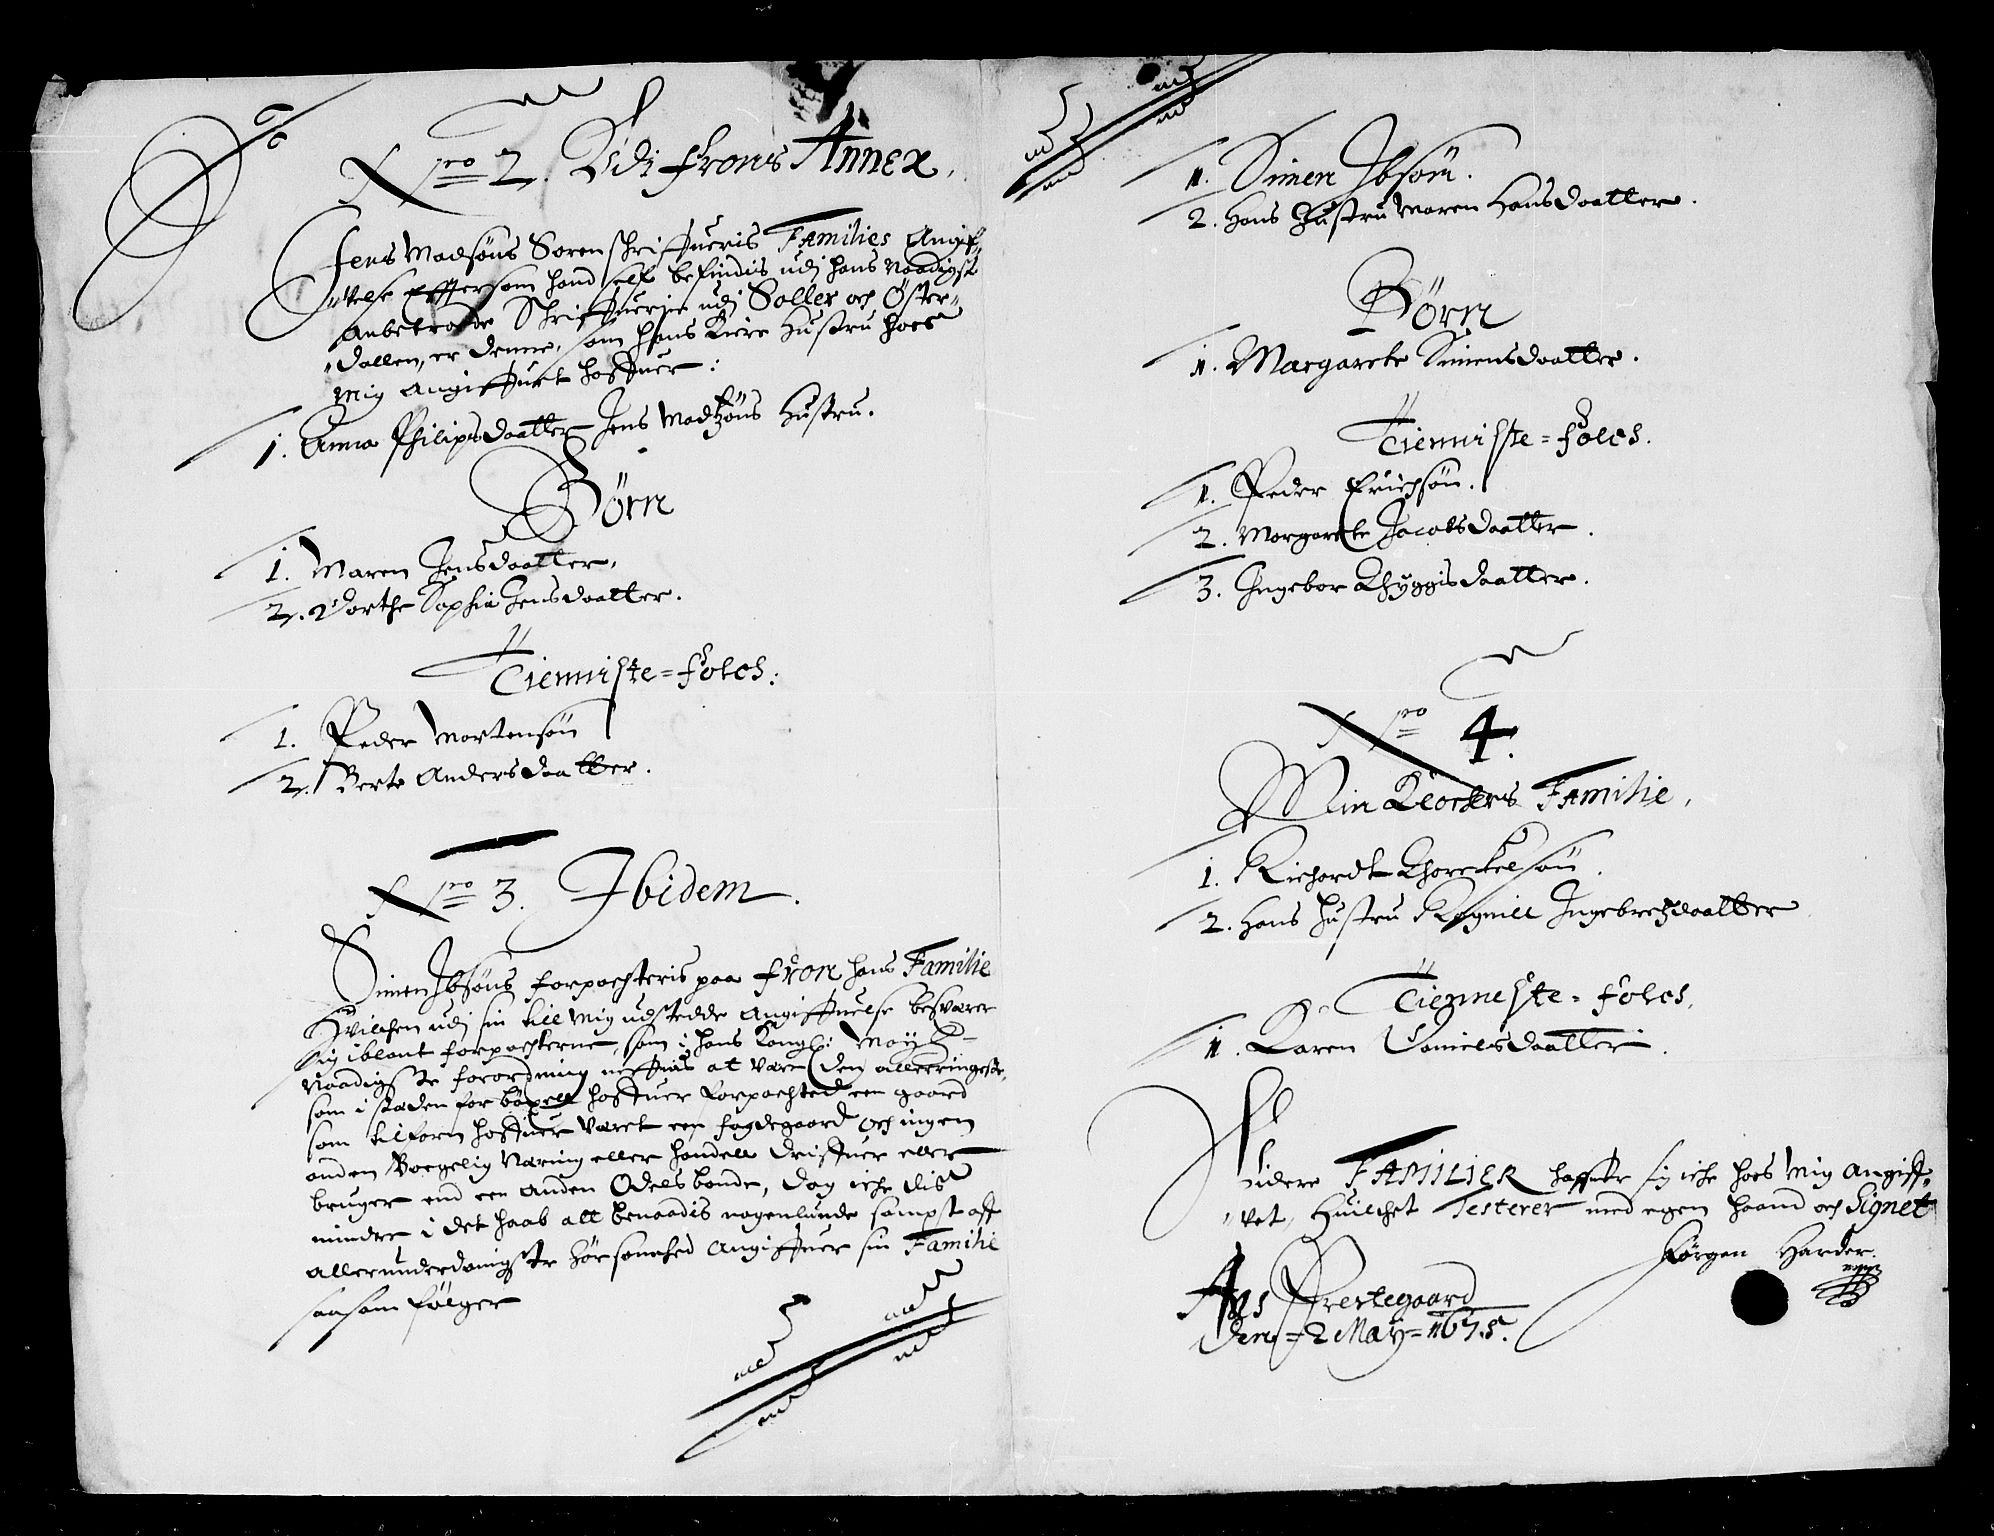 Nro 2. Vdi frons Annex.
Jens Madsöns Sorenschriffueris Families Angif„
„uelse Efftersom hand self befindis udj hans Naadigst
Anbetroede Schriffuerie udj Sollør och Öster„
„dallen, er denne, som Hans Kiere Hustru hoes
Mig Angiffuet haffuer:
1. Anna Philipsdaatter Jens Madtzöns Hustru.
Börn
1. Maren Jensdaatter,
2. Dorthe Sophia Jensdaatter.
Tienniste=folch:
1. Peder Mortensön
2. Berte Andersdaatter.
Nro 3. Ibidem.
Simen Ibsöns forpachteris paa fron hans Familie
Hvilchen udj sin till Mig udstedde Angiffuelse besværer
sig iblant forpachterne, som i hans Kongl: May:
Naadigste forordning neffnis at være den allerringeste,
som i staden for betzell haffuer forpachted een gaard
som tilforn haffuer været een fogdegaard och ingen
anden Borgelig Næring eller handell driffuer eller
bruger end een anden Odels bonde, dog iche dis
mindre i det haab att benaadis nogenlunde sampt aff
allerunderdanigste hörsomhed Angiffuer sin Familie
saasom fölger
1. Simen Ibsön.
2. Hans Hustru Maren Hansdaatter.
Börn
1. Margarete Simensdaatter.
Tienniste=folch.
1. Peder Erichsön.
2. Margarete Jacobsdaatter.
3. Ingebor Thyggisdaatter.
Nro 4.
Min Klockers Familie,
1. Richardt Thorckelsön.
2. Hans Hustru Ragnill Ingebretzdaatter
Tienneste=folch,
1. Karen Danielsdaatter.
Videre FAMILIER haffuer sig iche hoes Mig Angiff„
„vet, Huilchet Testerer med egen Haand och Signet
Jörgen Harder.
Aas Prestegaard
den=2 May=1675.